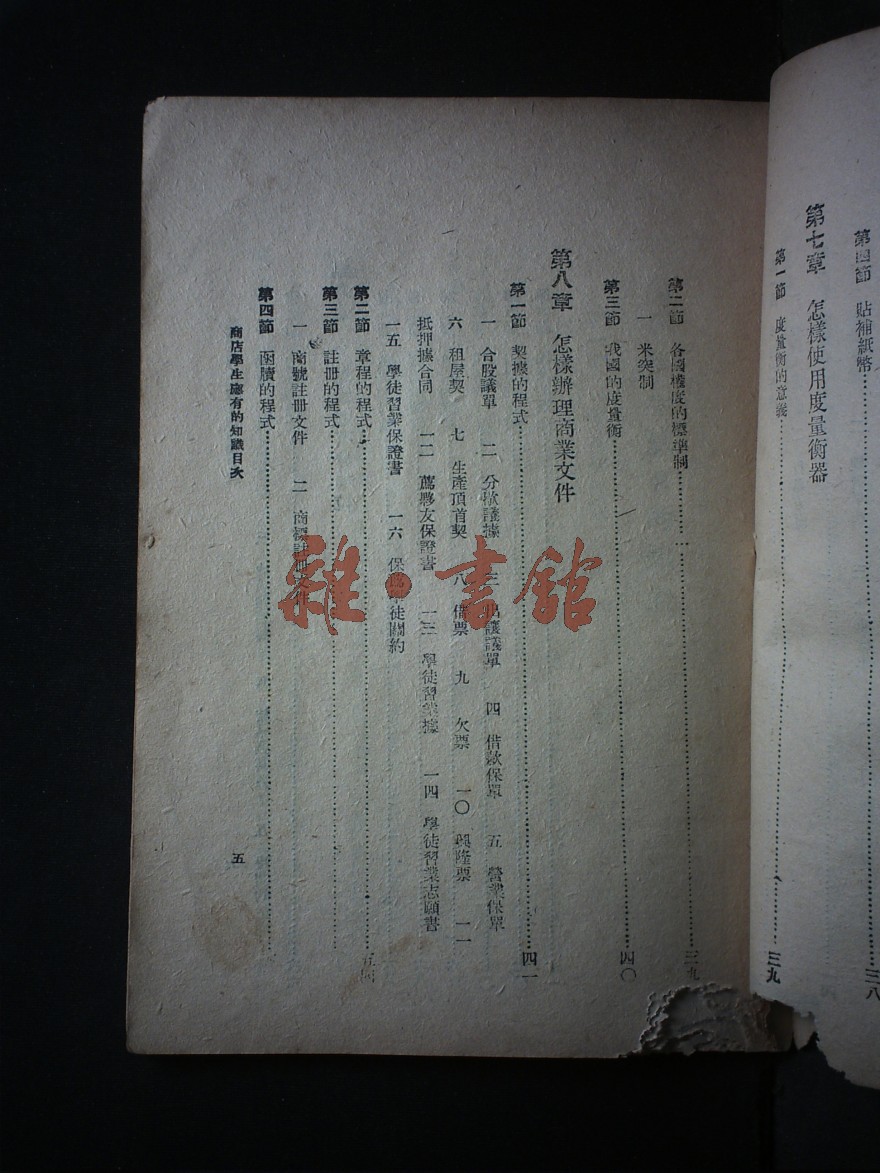 第四節 貼補紙幣……三八
第七章 怎樣使用度量衡器
第一節 度量衡的意義……三九
第二節 各國權度的標準制……三九
一 米突制
第三節 我國的度量衡……四〇
第八章 怎樣辦理商業文件
第一節 契據的程式……四一
一 合股議單 二 分議據 三 出讓議單 四 借款保單 五 營業保單
六 租屋契 七 生產頂首契 八 借票 九 欠票 一〇 興隆票 一一
抵押據合同 一二 薦夥友保證書 一三 學徒習業據 一四 學徒習業志願書
一五 學徒習業保證書 一六 保薦學徒關約
第二節 章程的程式……五四
第三節 註冊的程式……
一 商號註冊文件 二 商標註冊文件
第四節 函牘的程式……
商店學生應有的知識目次
五
雜·書館